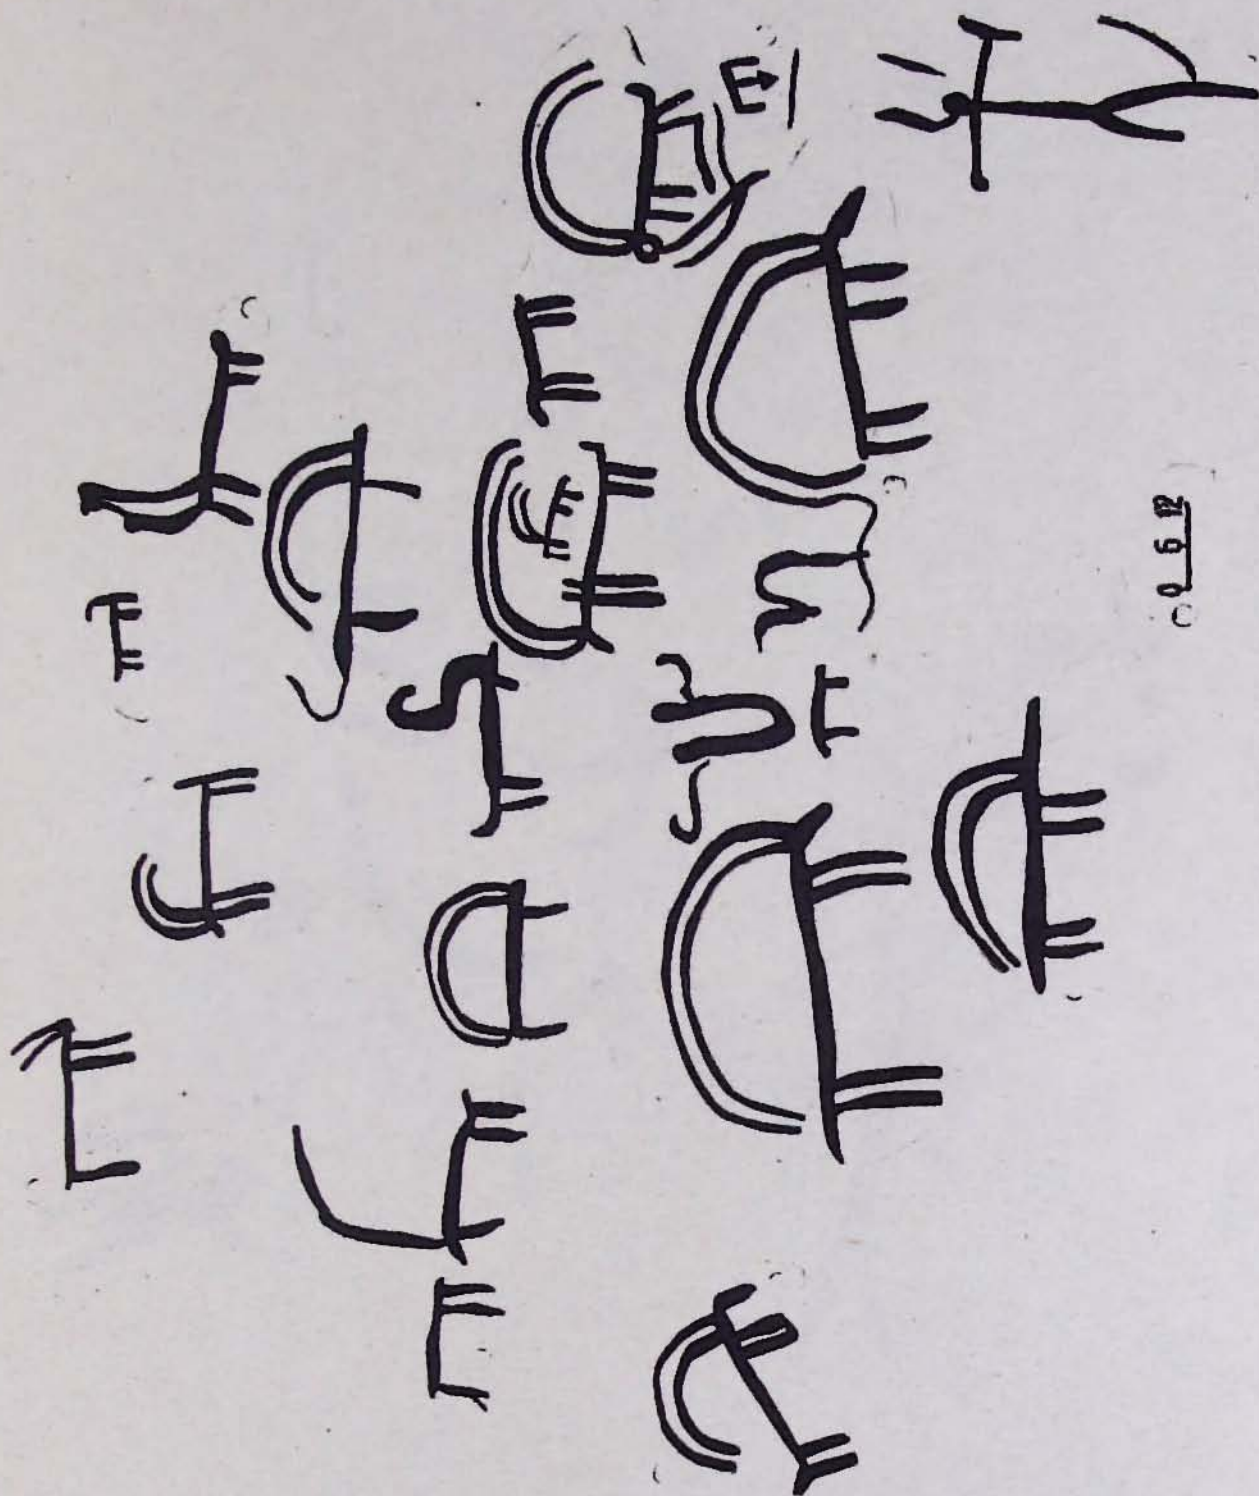 0 6 12